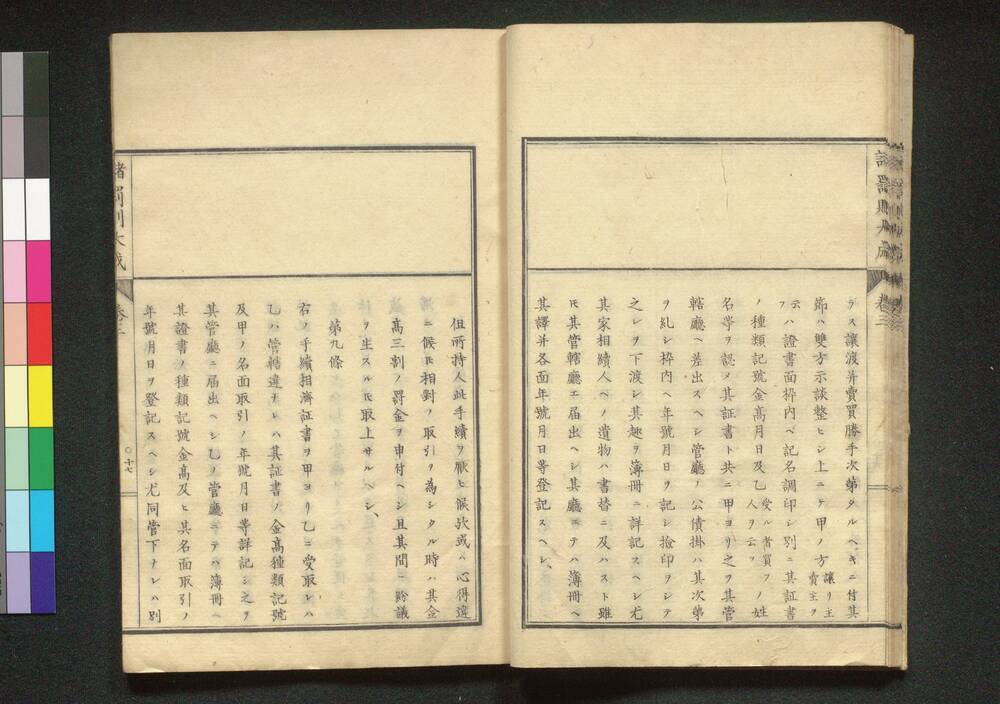 ラス讓渡并賣買勝手次第タルヘキニ付其
節ハ雙方示談整ヒシ上ニテ甲ノ方讓リ主賣主ヲ
云フハ證書面枠内ヘ記名調印シ別ニ其証書
ノ種類記號金高月日及乙受ル者買フ人ヲ云フノ姓
名等ヲ認メ其証書ト共ニ甲ヨリ之ヲ其管
轄廳ヘ差出スヘシ管廳ノ公債掛ハ其次第
ヲ糺シ枠内ヘ年號月日ヲ記シ撿印ヲシテ
之レヲ下渡シ其趣ヲ薄冊ニ詳記スヘシ尤
其家相續人ヘノ遺物ハ書替ニ及ハスト雖
モ其管轄廳エ届出ヘシ其廳ニテハ薄冊ヘ
其譯并各面年號月日等登記スヘシ、
諸罰則大成 卷三
但所持人此手續ヲ厭ヒ候歟或ハ心得違
ニ候トモ相對ノ取引ヲ為シタル時ハ其金
高三割ノ罸金ヲ申付ヘシ且其間ニ紛議
ヲ生スルモ取上サルヘシ、
第九條
右ノ手續相濟証書ヲ甲ヨリ乙ニ受取レハ
乙ハ管轄違ナレハ其証書ノ金高種類記號
及甲ノ名面取引ノ年號月日等詳記シ之ヲ
其管廳ニ届出ヘシ乙ノ管廳ニテハ薄冊ヘ
其證書ノ種類記號金高及ヒ其名面取引ノ
年號月日ヲ登記スヘシ尤同管下ナレハ別
諸罰則大成 卷三
〇十七